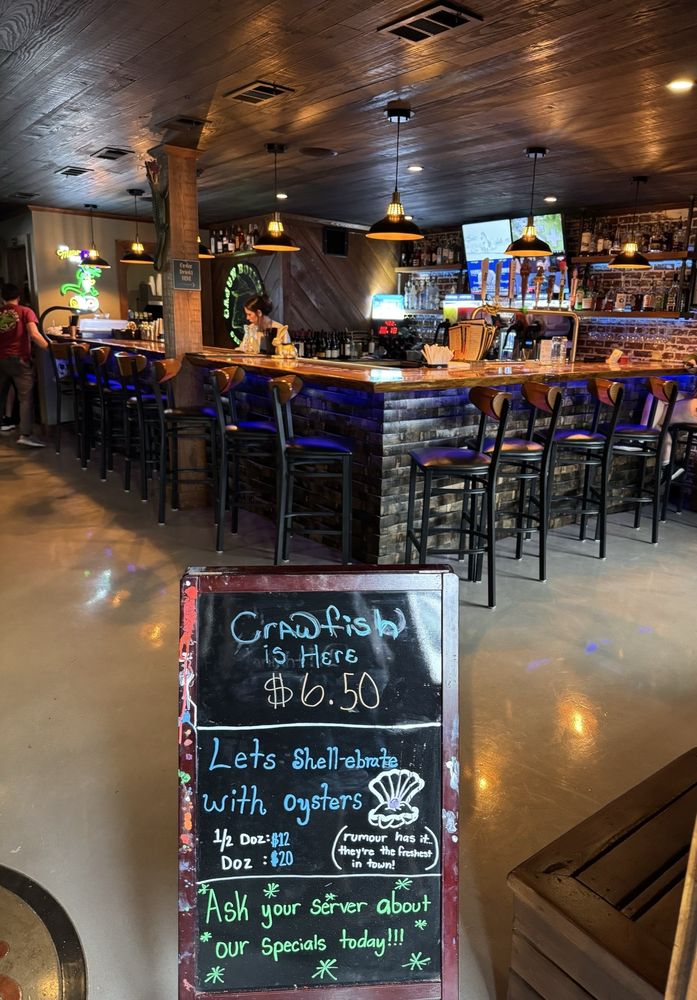 Crawfish
is Here
$6.50
Lets Shell-ebrate
with oysters
1/2 Doz: $12
Doz : $20
(rumour has it..
they're the freshest
in town!)
Ask your server about
our Specials today!!!